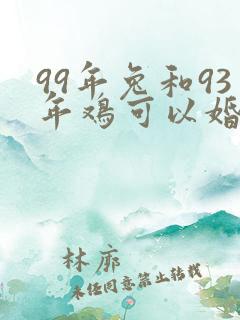 99年兔和93
年鸡可以婚
林廓
未任同意禁止转载